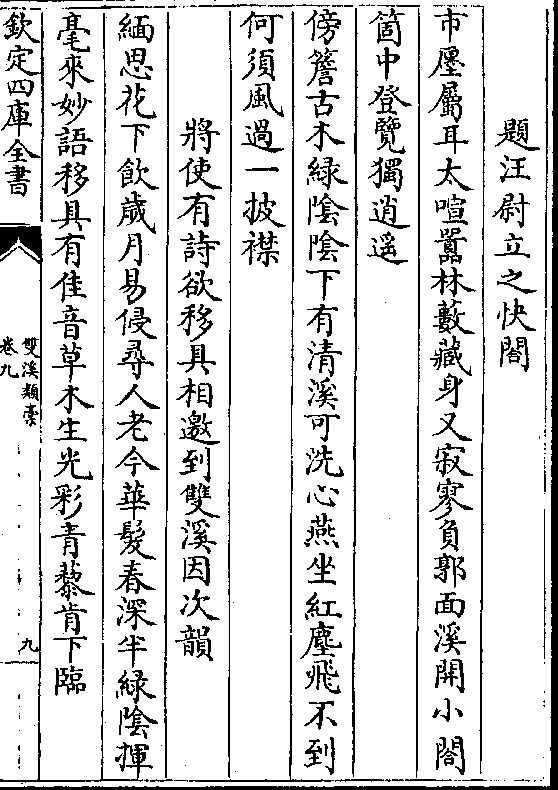 題汪尉立之快閣
市廛屬耳太喧囂林藪藏身又寂寥負郭面溪開小閣
箇中登覽獨逍遥
傍簷古木緑陰陰下有清溪可洗心燕坐紅塵飛不到
何須風過一披襟
將使有詩欲移具相邀到雙溪因次韻
緬思花下飲歲月易侵尋人老今華髮春深半緑陰揮
毫來妙語移具有佳音草木生光彩青藜肯下臨
欽定四庫全書
雙溪類稾
卷九
九